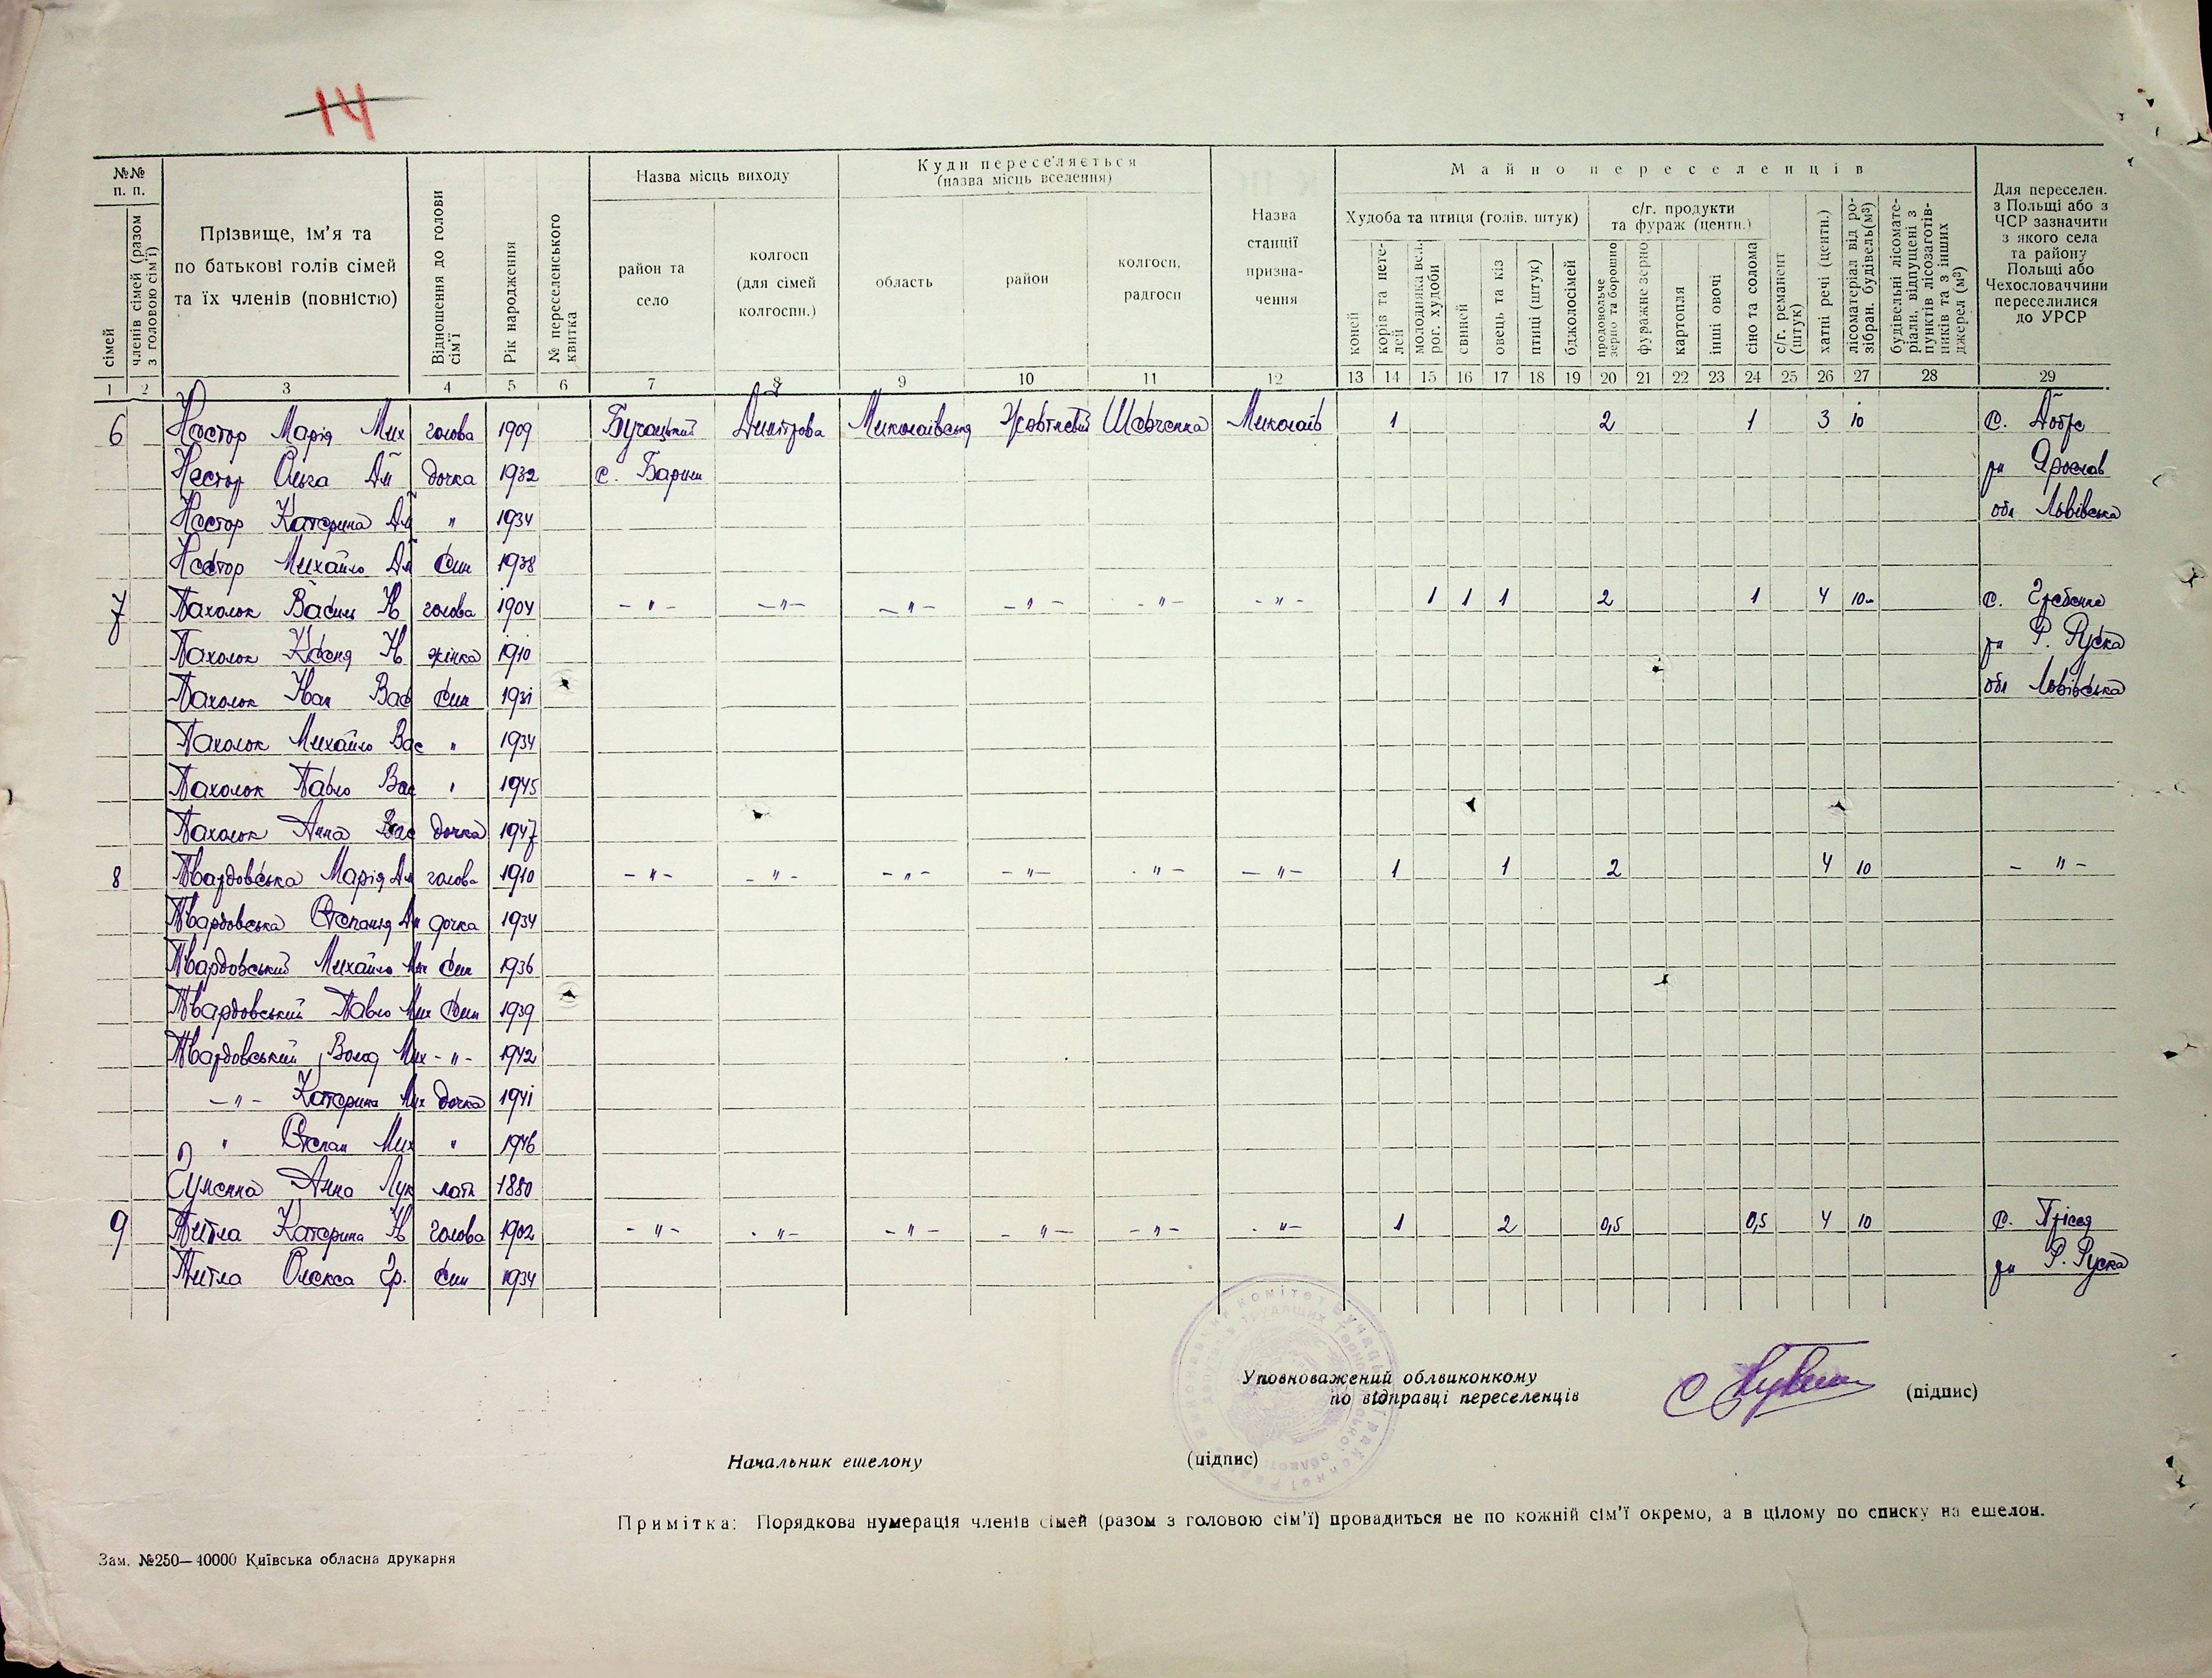 14
№№ п. п.
Прізвище, ім'я та по батькові голів сімей та їх членів (повністю)
Відношення до голови сім'ї
Рік народження
№ переселенського квитка
Назва місць виходу
Куди переселяється (назва місць вселення)
Назва станції призначення
Майно переселенців
Для переселен. з Польщі або з ЧСР зазначити з якого села та району Польщі або Чехословаччини переселилися до УРСР
сімей
членів сімей (разом з головою сім'ї)
район та село
колгосп (для сімей колгоспн.)
область
район
колгосп, радгосп
Худоба та птиця (голів, штук)
с/г. продукти та фураж (центн.)
коней
корів та нетелей
молодняка вел. рог. худоби
свиней
овець та кіз
птиці (штук)
бджолосімей
продовольче зерно та борошно
фуражне зерно
картопля
інші овочі
сіно та солома
с/г. реманент (штук)
хатні речі (центн.)
лісоматеріал від розібран. будівель (м³)
будівельні лісоматеріали, відпущені з пунктів лісозаготівників та з інших джерел (м³)
1 2 3 4 5 6 7 8 9 10 11 12 13 14 15 16 17 18 19 20 21 22 23 24 25 26 27 28 29
6 Нестор Марія Мих голова 1909 Бучацький Димітрова Миколаївська Жовтневий Шевченка Миколаїв 1 2 1 3 10 с. Добре
Нестор Ольга Дм дочка 1932 с. Бариш рн Ярослав
Нестор Катерина Дм " 1934 обл Львівська
Нестор Михайло Дм син 1938
7 Пахолок Василь Н голова 1904 -"- -"- -"- -"- -"- -"- 1 1 1 2 1 4 10 с. Гребенне
Пахолок Ксеня Н жінка 1910 рн Р. Руска
Пахолок Іван Вас син 1931 обл Львівська
Пахолок Михайло Вас " 1934
Пахолок Павло Вас " 1945
Пахолок Анна Вас дочка 1947
8 Твардовська Марія Дм голова 1910 -"- -"- -"- -"- -"- -"- 1 1 2 4 10 -"-
Твардовська Степанія дочка 1934
Твардовський Михайло Мих син 1936
Твардовський Павло Мих син 1939
Твардовський Волод Мих -"- 1942
-"- Катерина Мих дочка 1941
" Степан Мих " 1946
Анна Лук мати 1880
9 Питла Катерина голова 1902 -"- -"- -"- -"- -"- -"- 1 2 0,5 0,5 4 10 с.
Питла Олекса Гр. син 1934 рн Р. Руска
Уповноважений облвиконкому
по відправці переселенців (підпис)
Начальник ешелону (підпис)
Примітка: Порядкова нумерація членів сімей (разом з головою сім'ї) провадиться не по кожній сім'ї окремо, а в цілому по списку на ешелон.
Зам. №250—40000 Київська обласна друкарня